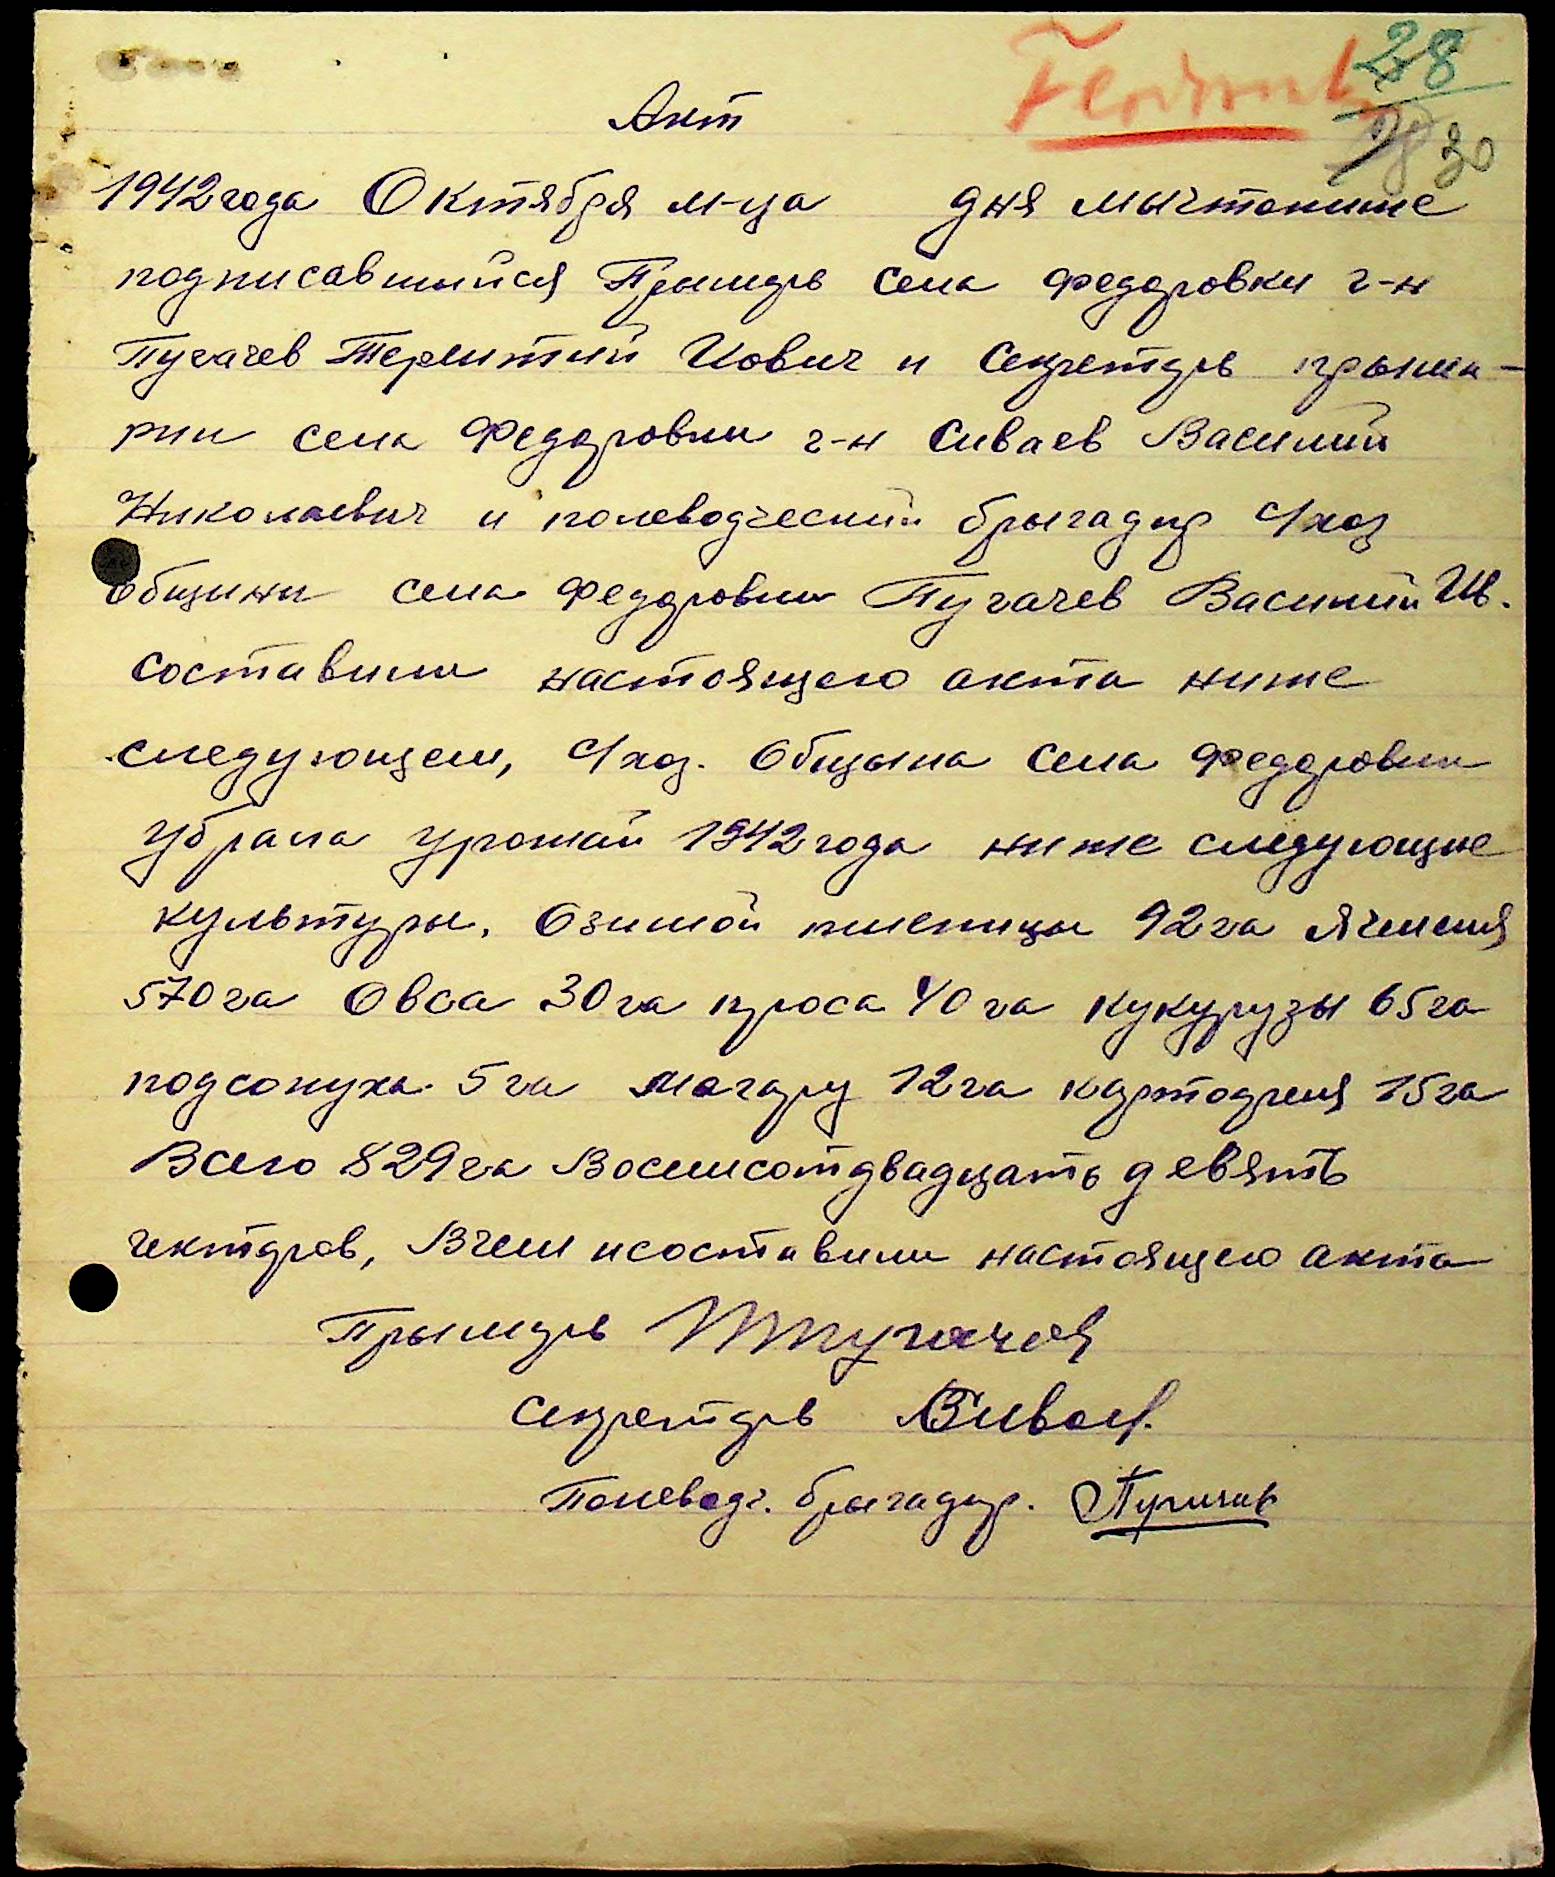 28
30
Акт
1942 года Октября м-ца дня мычтониже
подписавшыйся Прымарь села Федоровки г-н
Пугачев Терентий Иович и Секретарь прыма-
рии села Федоровки г-н Сиваев Василий
Николаевич и полеводческий брыгадир с/хоз
общины села Федоровки Пугачев Василий Ив.
составили настоящего акта ниже
следующем, с/хоз. Общына села Федоровки
убрала урожай 1942 года ниже следующие
культуры, Озимой пшеницы 92 га Ячменя
570 га Овса 30 га проса 40 га кукурузы 65 га
подсонуха 5 га могару 12 га картофеля 15 га
Всего 829 га Восемсотдвадцать девять
гектаров, Вчем исоставили настоящего акта
Прымарь Пугачев
Секретарь Сиваев
Полеводч. брыгадир. Пугачев